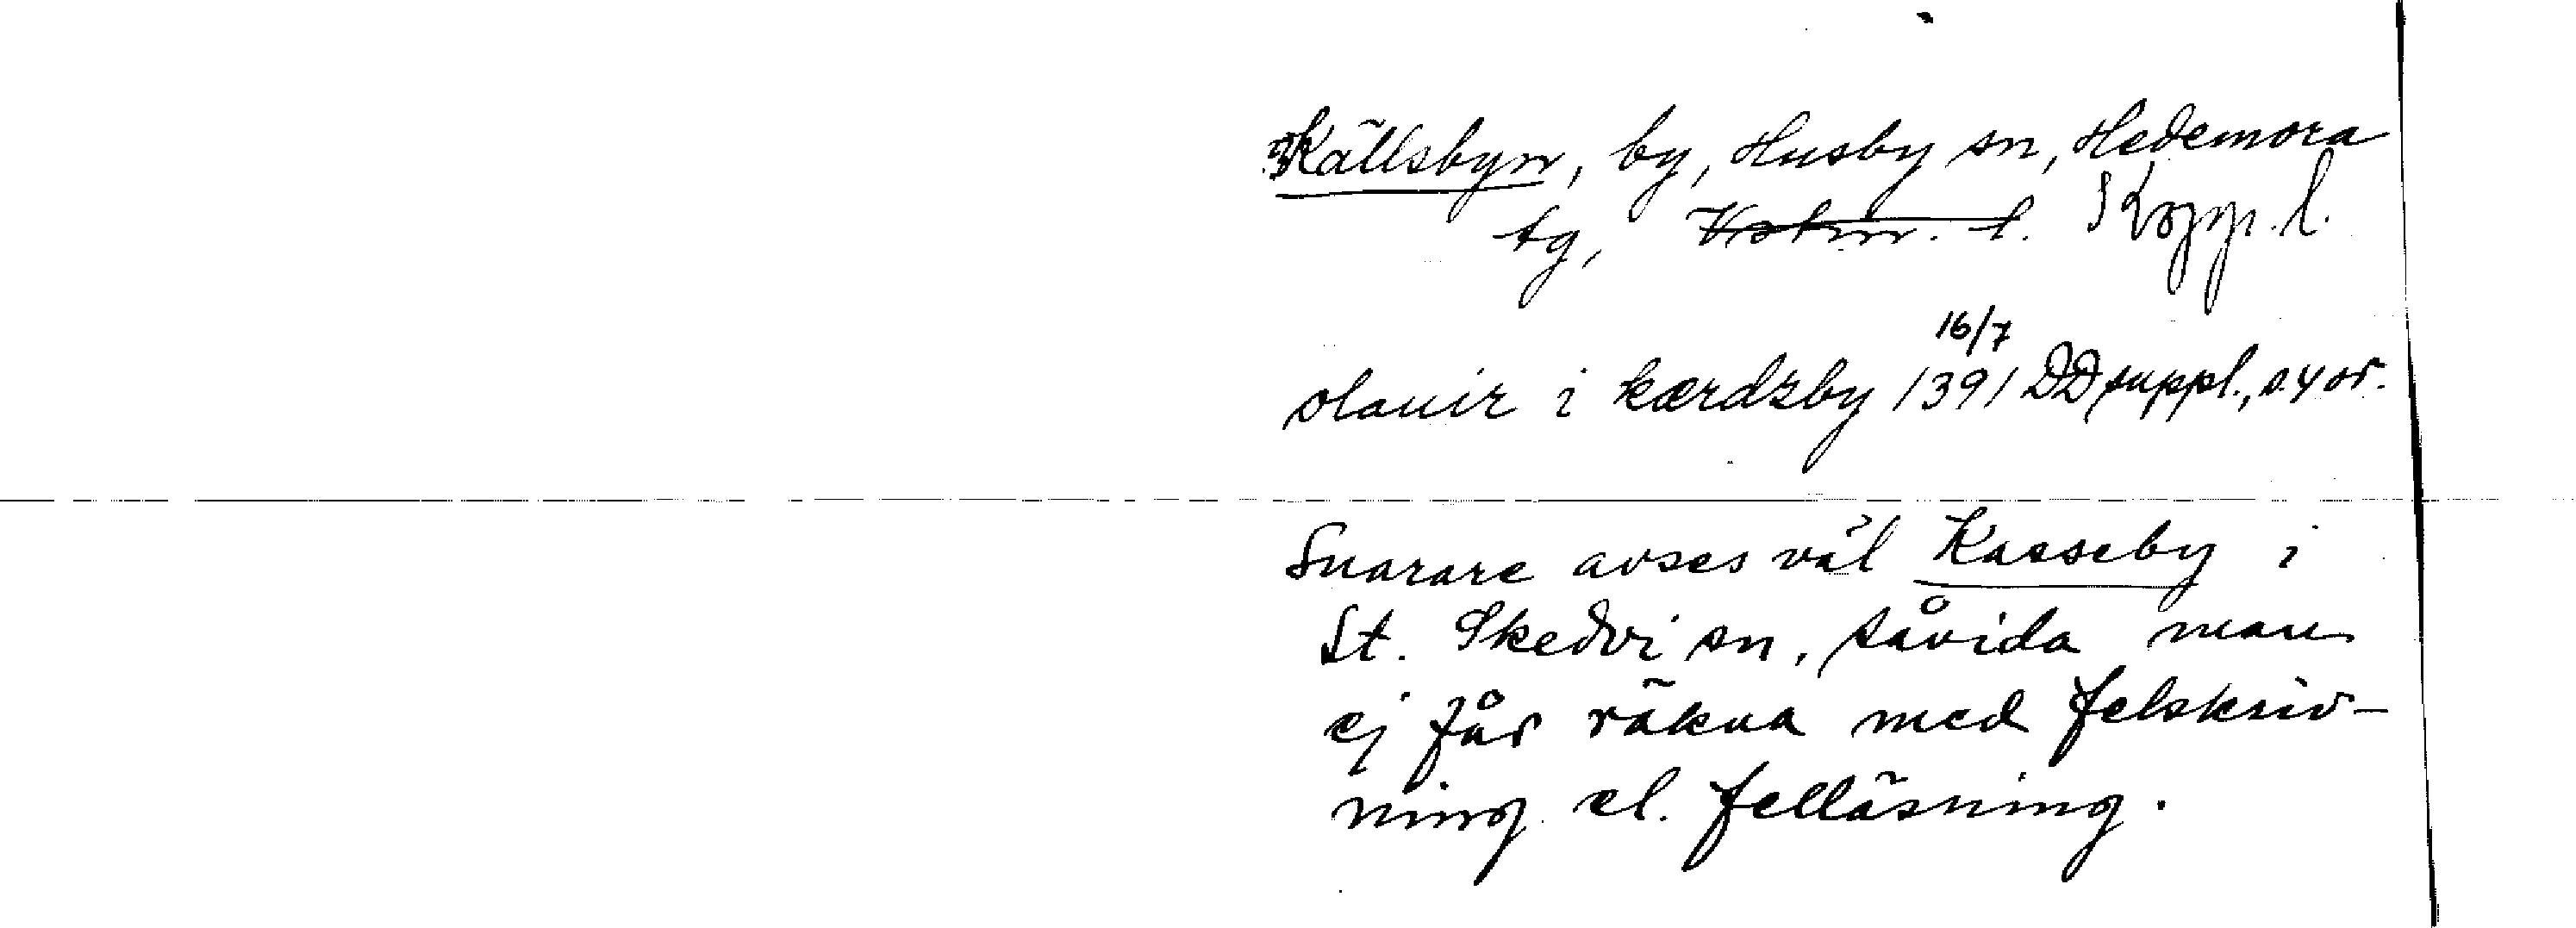 ?Källsbyn, by, Husby sn, Hedemora
tg, Vstm. l. Kopp. l.
olauir i kærdzby 16/7 1391 DD suppl., s. 4 or.
Snarare avses väl Kasseby i
St. Skedvi sn, såvida man
ej får räkna med felskriv-
ning el. felläsning.